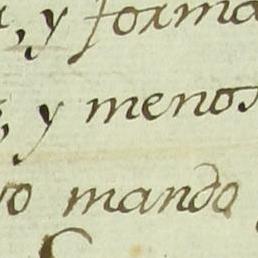 , y forma
, y menos
ro mando